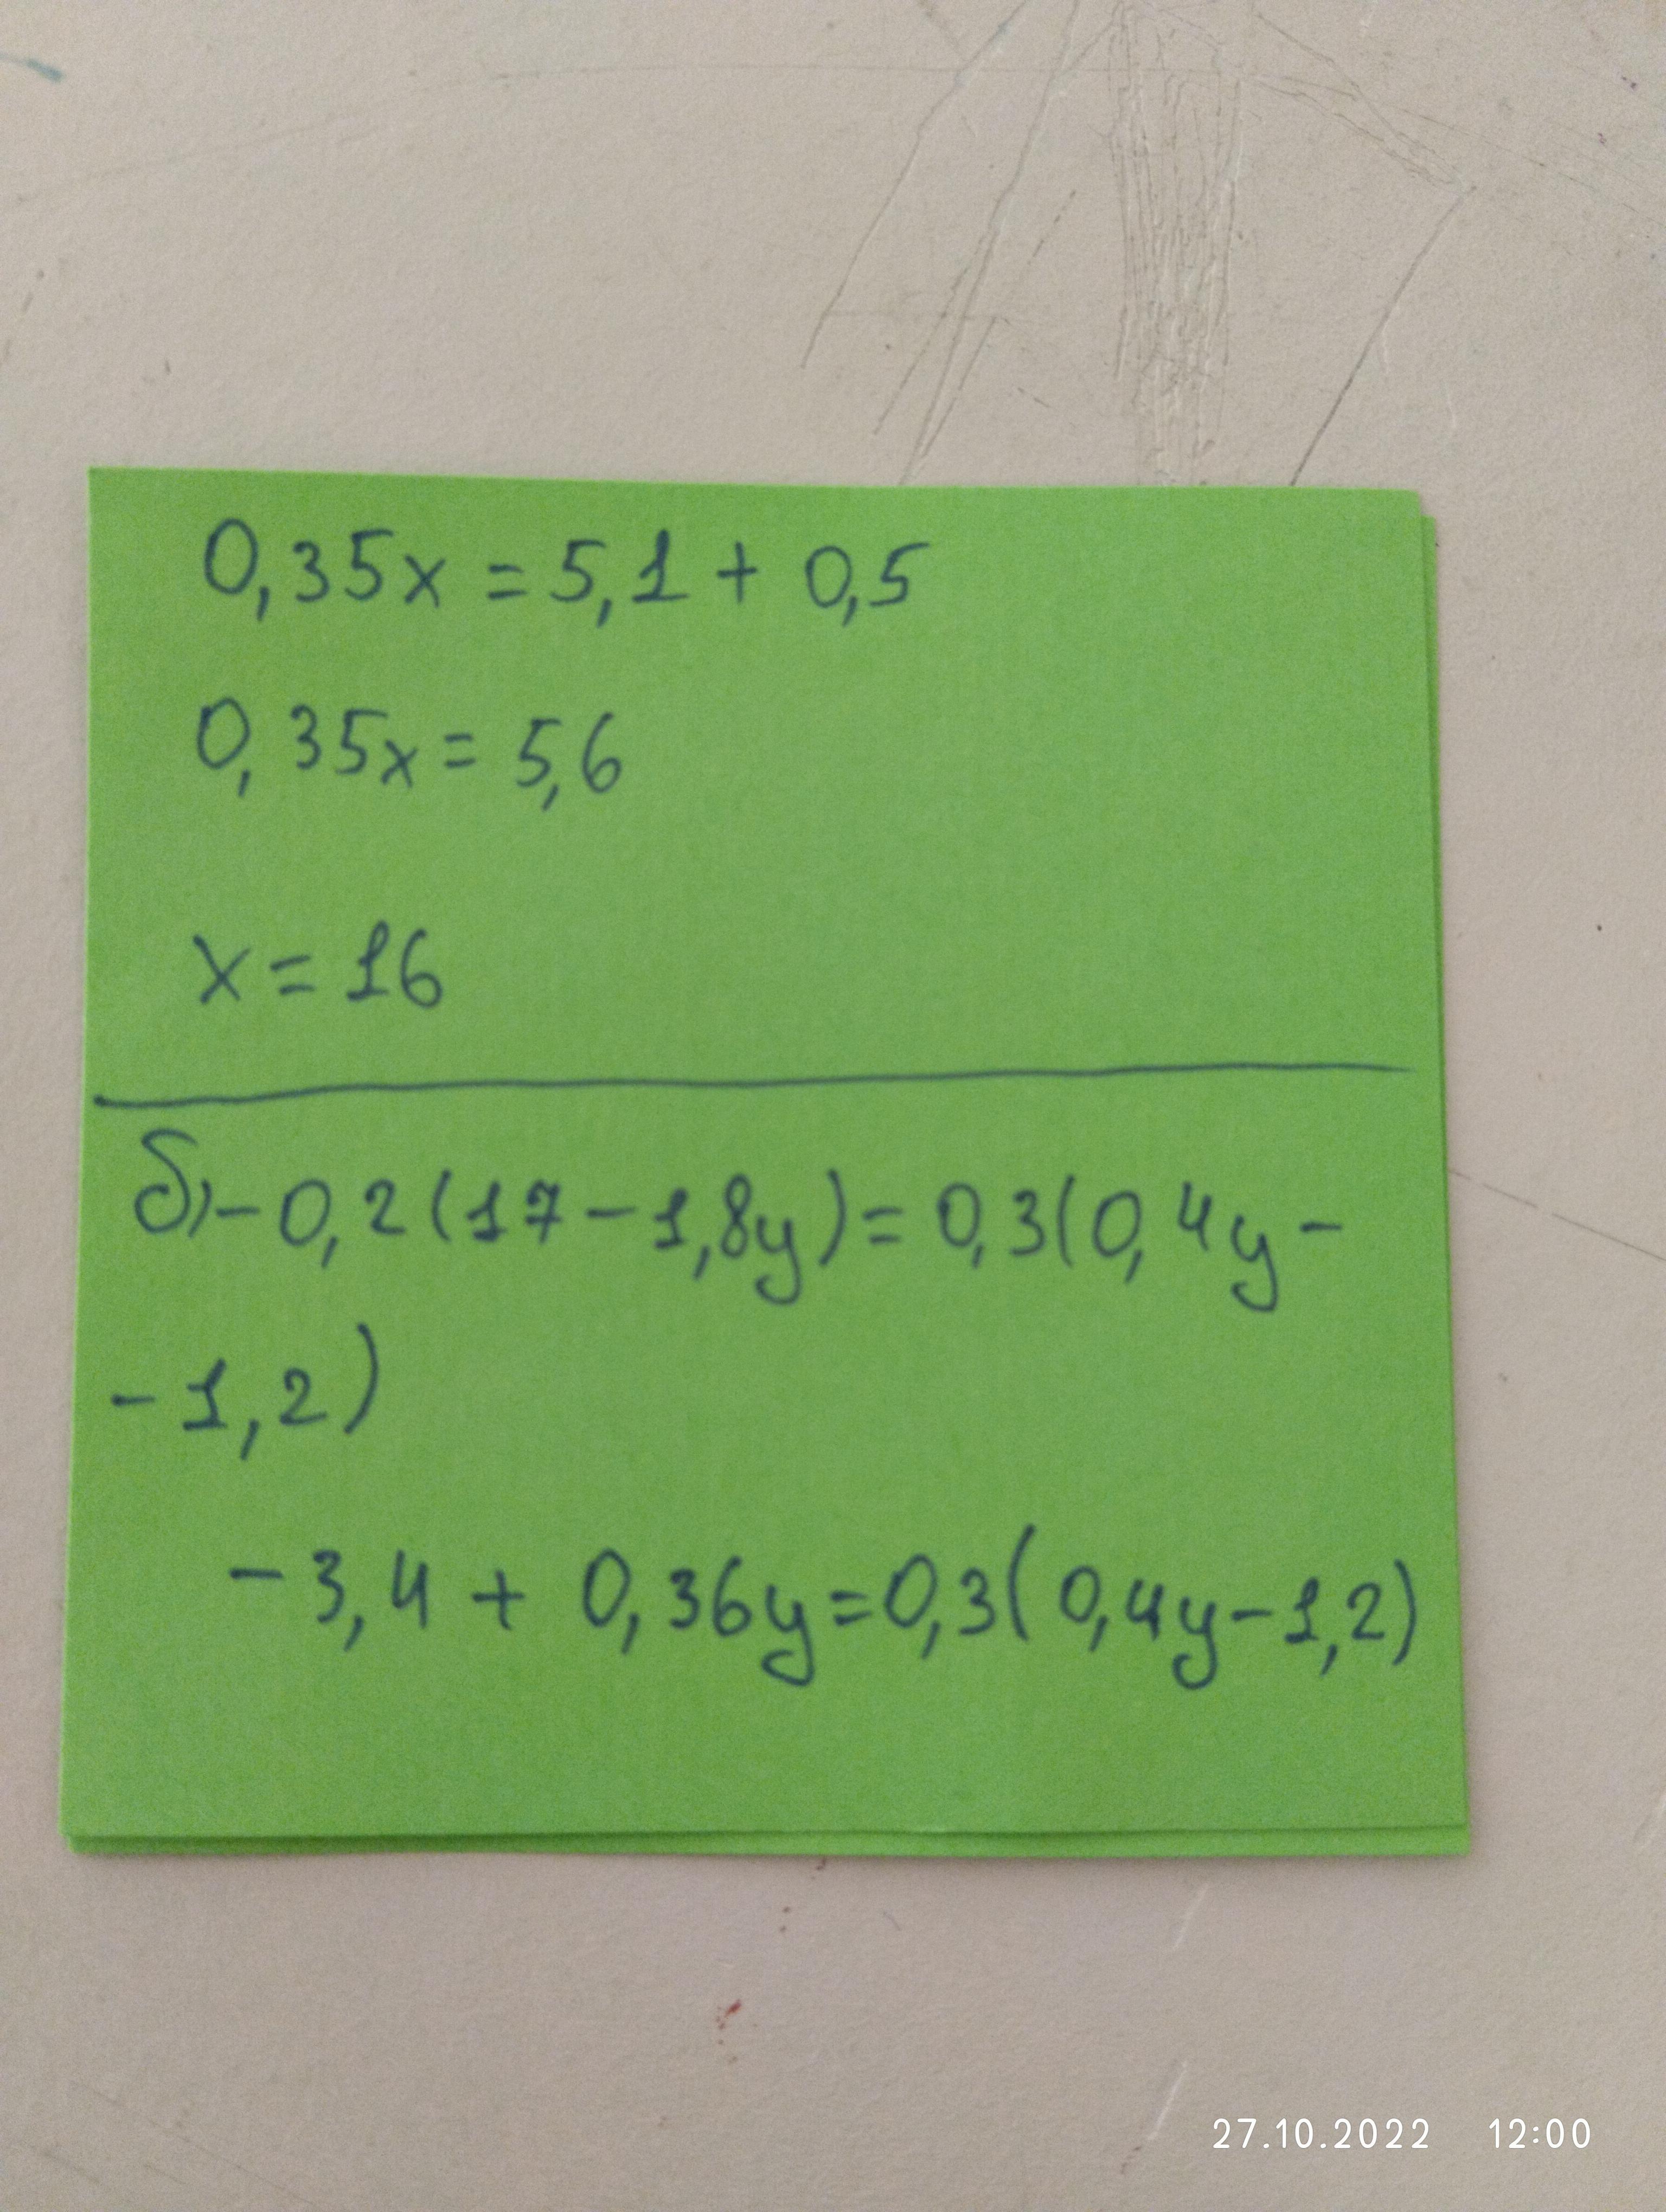 0,35x = 5,1 + 0,5
0,35x = 5,6
x = 16
б) - 0,2(17 - 1,8y) = 0,3(0,4y -
- 1,2)
- 3,4 + 0,36y = 0,3(0,4y - 1,2)
27.10.2022 12:00